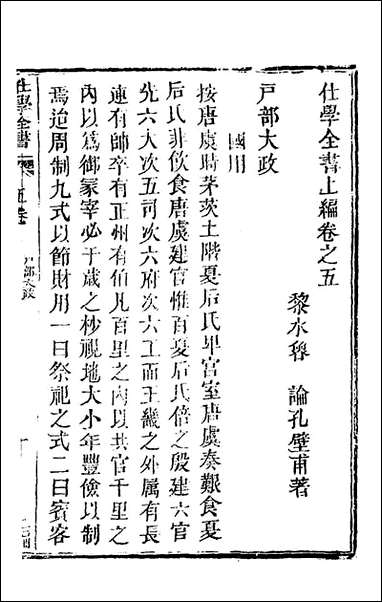 仕學全書上編卷之五
黎水魯論孔壁甫著
戸部大政
國用
按唐虞時茅茨土階夏后氏卑宮室唐虞奏艱食夏
后氏非飲食唐虞建官惟百夏后氏倍之殷建六官
先六大次五司次六府次六工而王畿之外屬有長
連有帥卒有正州有伯凡百里之內以共官千里之
內以爲御冢宰必于歲之杪視地大小年豐儉以制
焉迨周制九式以節財用一曰祭祀之式二曰賓客
仕學全書
五卷
戸部大政
一